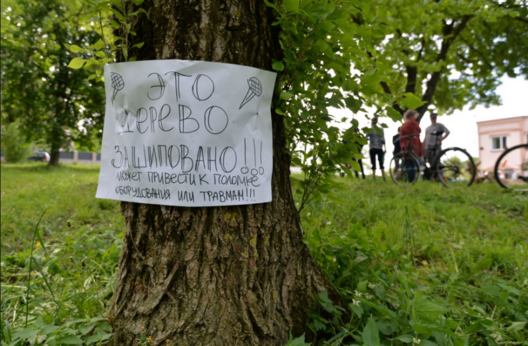 ЭТО
ДЕРЕВО
ЗАШИПОВАНО!!!
МОЖЕТ ПРИВЕСТИ К ПОЛОМКЕ
ОБОРУДОВАНИЯ ИЛИ ТРАВМАН!!!